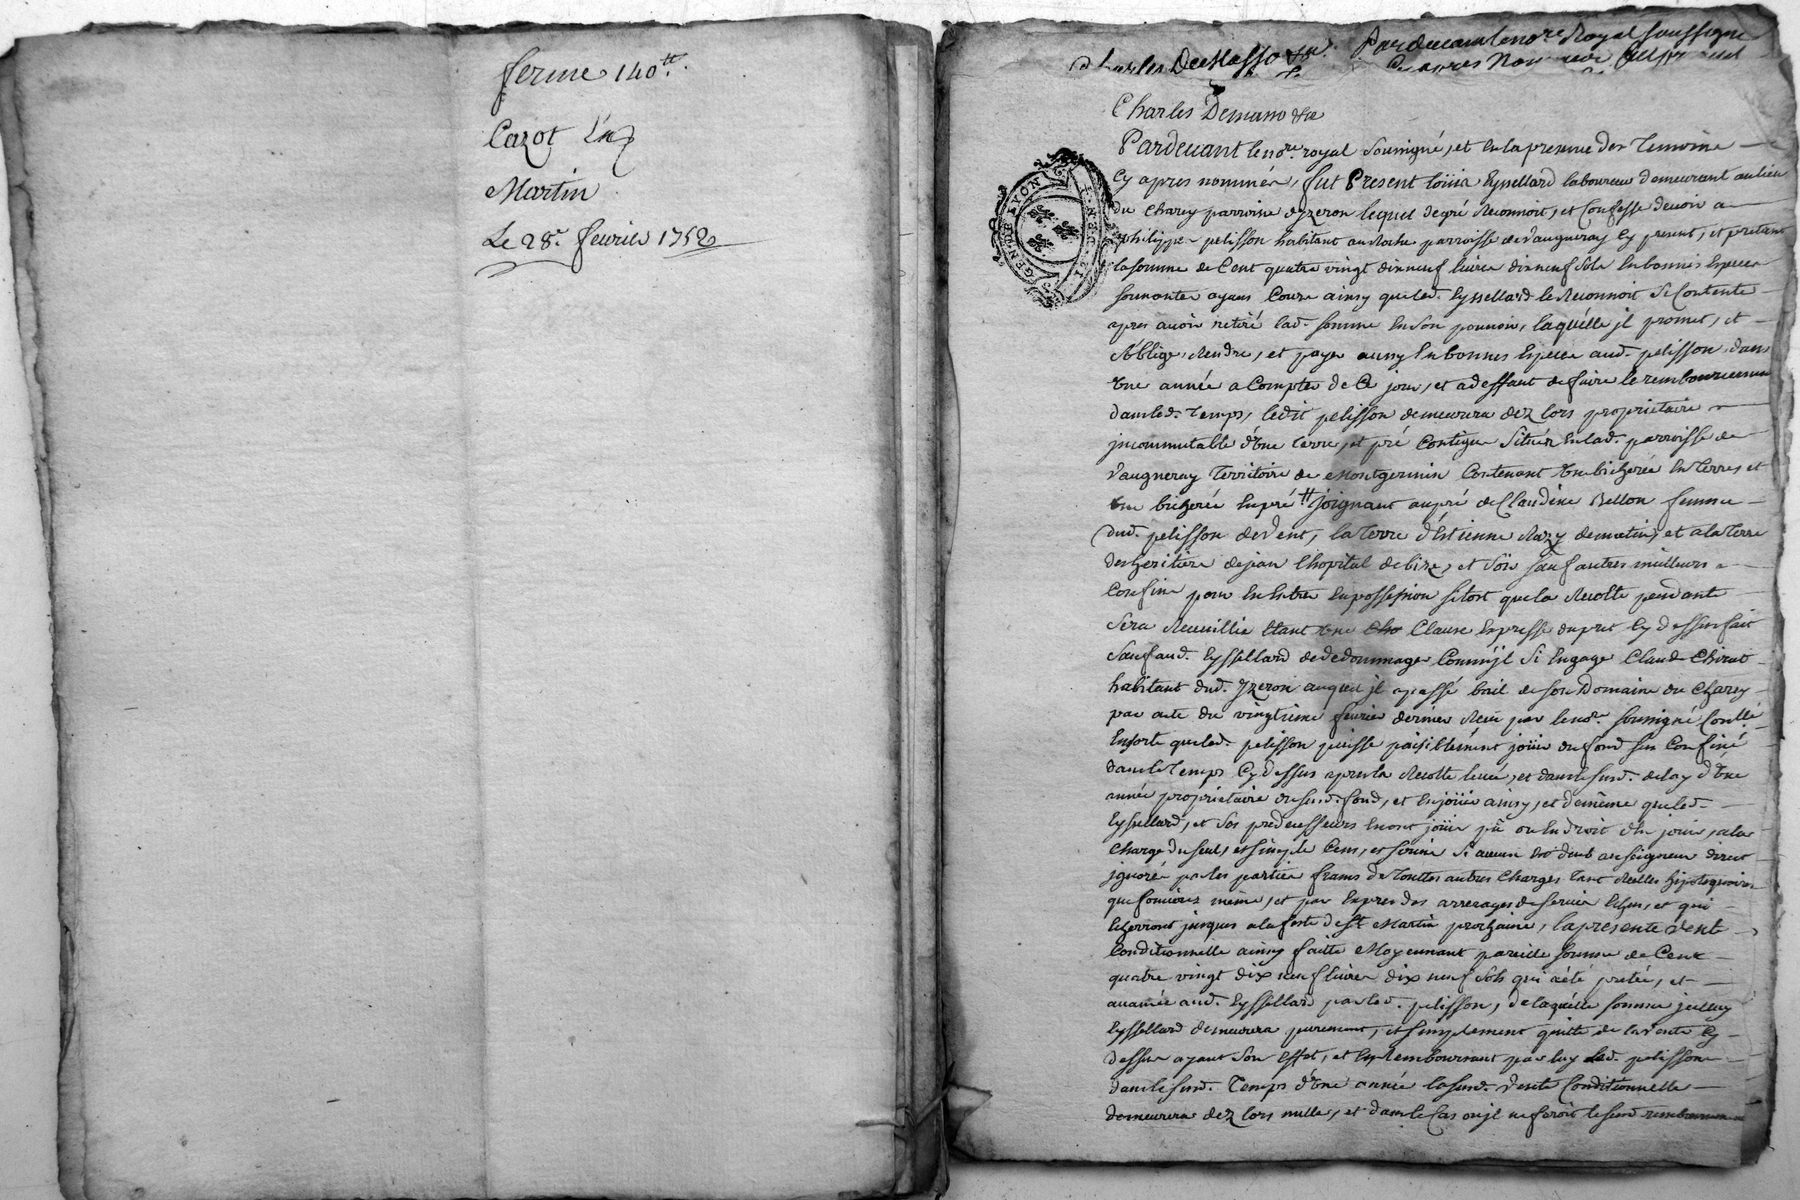 ferme 140tt.
Cazot
Martin
Le 28e. fevrier 1752
Pardevant le nore Royal soussigné
Charles
cy apres
Charles
Pardevant le nore. royal soussigné, et en la presence des Temoins
Cy apres nommés, fut Present loüis Eyssellard laboureur demeurant au lieu
du Charey parroisse dyzeron lequel de gré Reconnoit, et Confesse devoir a
philippe pelisson habitant au Roche parroisse de vaugneray Cy present, et pretant
la somme de Cent quatre vingt dix neuf livres dix neuf sols en bonnes Especes
sonnantes ayans Cours ainsy que led. Eyssellard le Reconnoit Se Contente
apres avoir retiré lad. somme en son pouvoir, laquelle jl promet, et
s'oblige, Rendre, et payer aussy en bonnes Especes aud. pelisson dans
une année a Compter de Ce jour, et a deffaut de faire le remboursement
dans led. Temps, ledit pelisson demeurera dez lors proprietaire
jncommutable d'une Terre, et pré Contigus Situés en lad. parroisse de
vaugneray Territoire de Montgermin Contenant une bicherée en Terres et
une bicherée en pré tt joignant au pré de Claudine Bellon femme
dud. pelisson de vent, la Terre d'Estienne Razy de matin, et a la Terre
des heritiers de jean lhopital de bize, et soir sauf autres meilleurs
Confins pour en Entrer en possession sitost que la Recolte pendante
Sera Recueillie Etant une Clause Expresse du pret Cy dessus fait
Sauf aud. Eyssellard de dedommager Comme jl Si Engage Claude Chirat
habitant dud. yzeron auquel jl a passé bail de son Domaine du Charey
par acte du vingtieme fevrier dernier Receu par le nore. soussigné Conllé
En sorte que led. pelisson puisse paisiblement joüir du fond sus Confiné
dans le Temps Cy dessus apres la Recolte levée, et dans le susd. delay d'une
année proprietaire du susd. fond, et en joüir ainsy, et de même que led.
Eyssellard, et Ses predecesseurs En ont joüir pû ou En droit d'En jouir, a la
Charge du seul, et simple Cens, et servis Si aucun Est dub au seigneur direct
jgnoré par les parties francs de Touttes autres Charges tant Reelles hipotequaires
que foncieres même, et par Exprés des arrerages de servis Echus, et qui
Echerront jusques a la feste de St Martin prochaine, la presente vente
Conditionnelle ainsy faitte Moyennant pareille somme de Cent
quatre vingt dix neuf livres dix neuf sols qui a été pretée, et
avancée aud. Eyssellard par led. pelisson, de laquelle somme jcelluy
Eyssellard demeurera purement, et simplement quitte de la vente Cy
dessus ayant son Effet, et En Remboursant par luy led. pelisson
dans le susd. Temps d'une année la susd. vente Conditionnelle
demeurera dez lors nulle, et dans le Cas ou jl ne feroit le susd remboursement